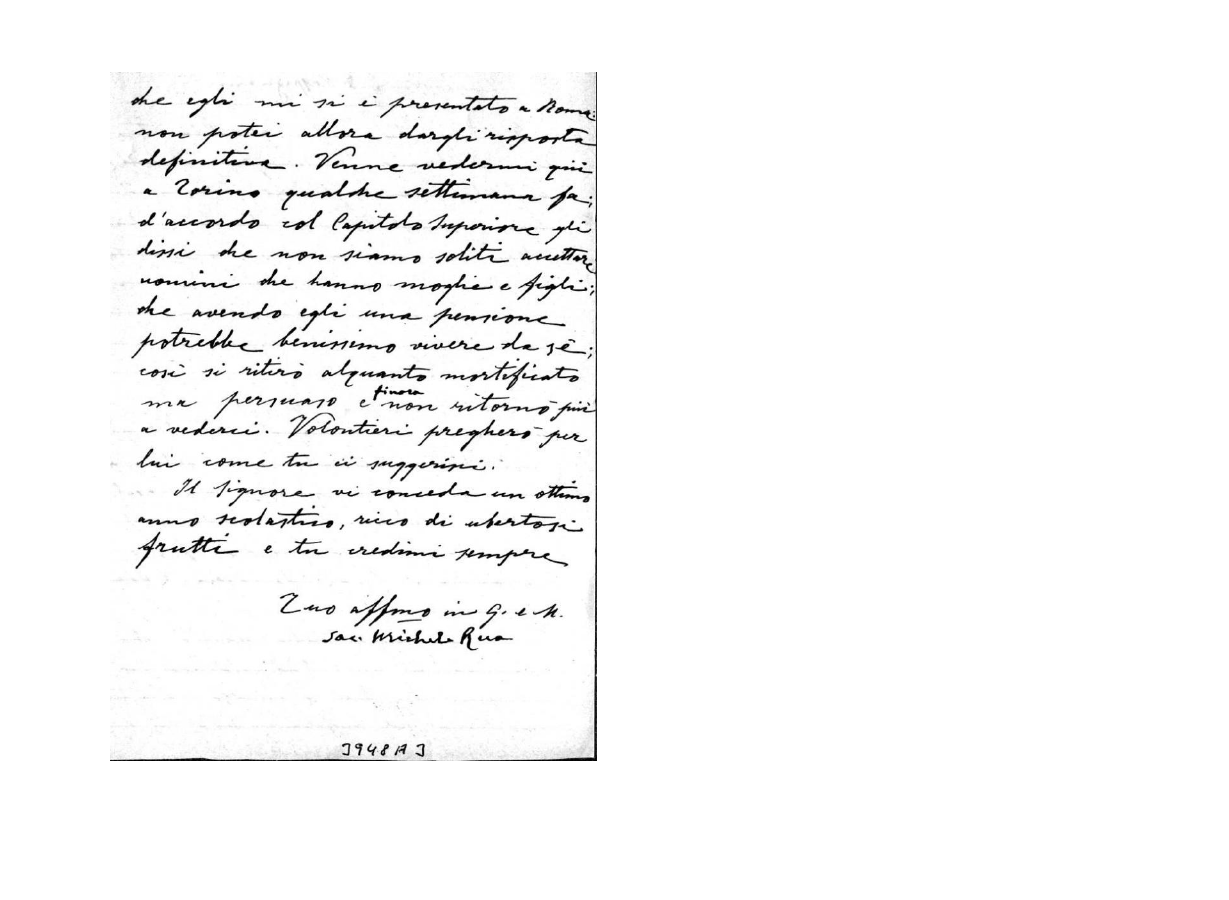 che egli mi si è presentato a Roma:
non potei allora dargli risposta
definitiva. Venne vedermi qui
a Torino qualche settimana fa;
d'accordo col Capitolo Superiore gli
dissi che non siamo soliti accettare
uomini che hanno moglie e figli;
che avendo egli una pensione
potrebbe benissimo vivere da sè;
così si ritirò alquanto mortificato
ma persuaso e finora non ritornò più
a vederci. Volontieri pregherò per
lui come tu ci suggerisci.
Il Signore vi conceda un ottimo
anno scolastico, ricco di ubertosi
frutti e tu credimi sempre
Tuo affmo in G. e M.
Sac. Michele Rua
3948 A3